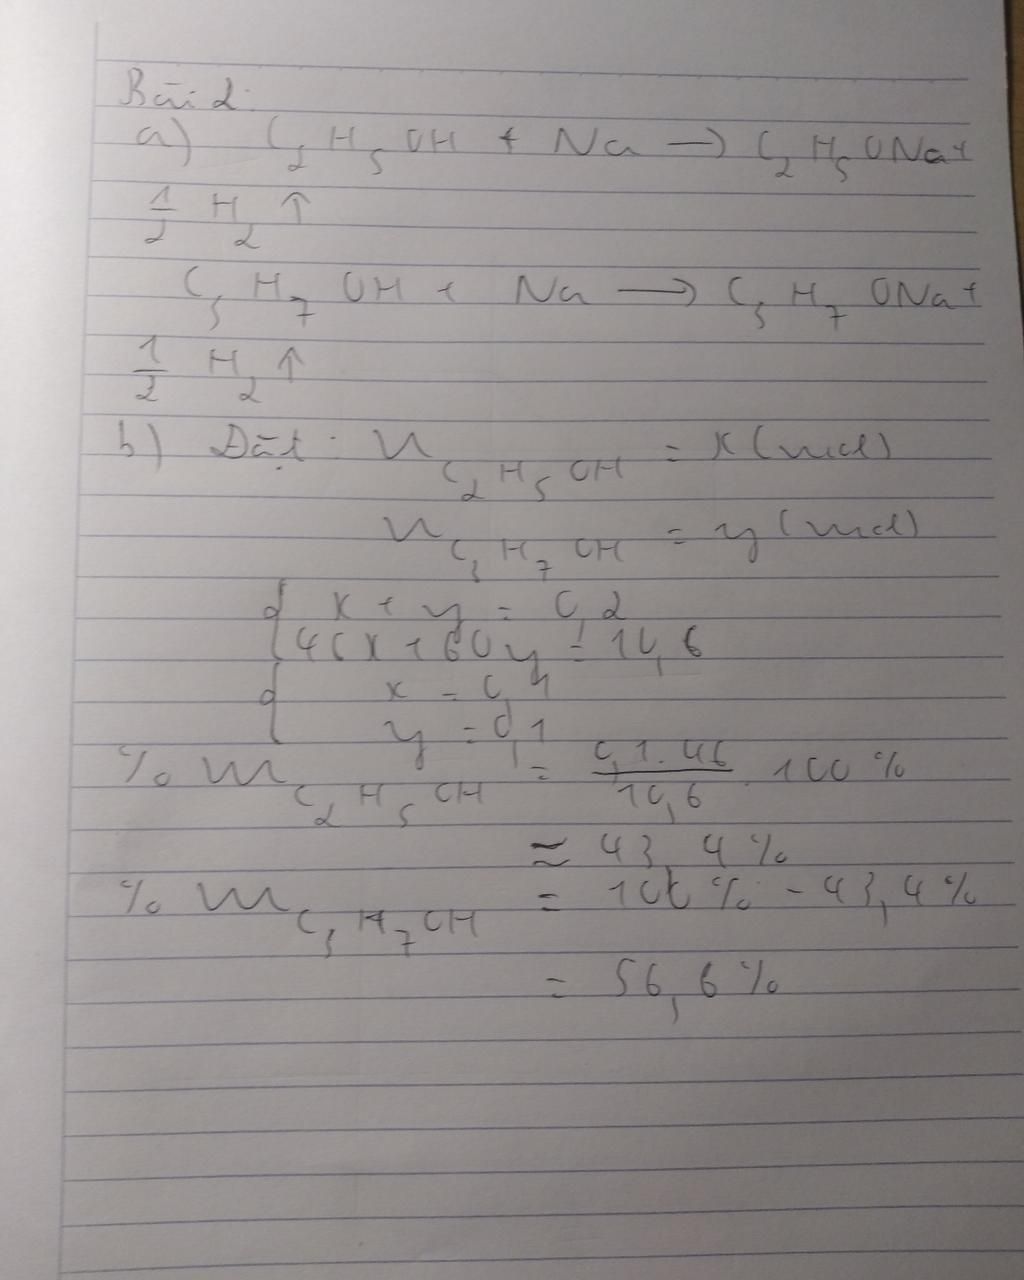 Bài 2:
a) C₂H₅OH + Na → C₂H₅ONa +
1/2 H₂ ↑
C₃H₇OH + Na → C₃H₇ONa +
1/2 H₂ ↑
b) Đặt: n C₂H₅OH = x (mol)
n C₃H₇OH = y (mol)
{ x + y = 0,2
46x + 60y = 10,6
{ x = 0,1
y = 0,1
% m C₂H₅OH = 0,1.46/10,6 . 100 %
≈ 43,4 %
% m C₃H₇OH = 100 % - 43,4 %
= 56,6 %